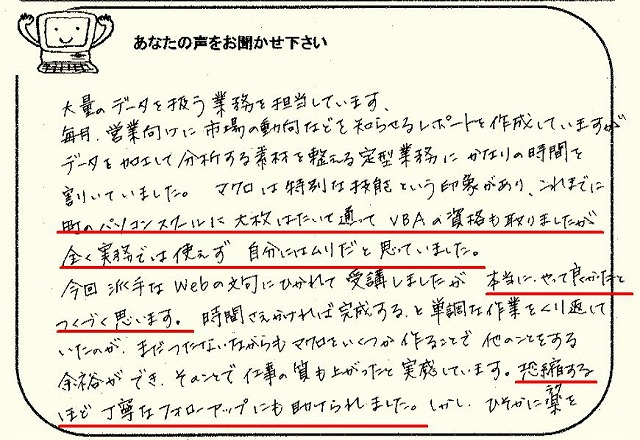 あなたの声をお聞かせ下さい
大量のデータを扱う業務を担当しています。
毎月、営業向けに市場の動向などを知らせるレポートを作成していますが
データを加工して分析する素材を整える定型業務にかなりの時間を
割いていました。 マクロは特別な技能という印象があり、これまでに
町のパソコンスクールに大枚はたいて通ってVBAの資格も取りましたが
全く実務では使えず 自分にはムリだと思っていました。
今回 派手なWebの文句にひかれて受講しましたが 本当に、やって良かったと
つくづく思います。 時間さえかければ完成する、と単調な作業をくり返して
いたのが、まだつたないながらもマクロをいくつか作ることで 他のことをする
余裕ができ、そのことで仕事の質も上がったと実感しています。恐縮する
ほど丁寧なフォローアップにも助けられました。しかし、ひそかに夢を